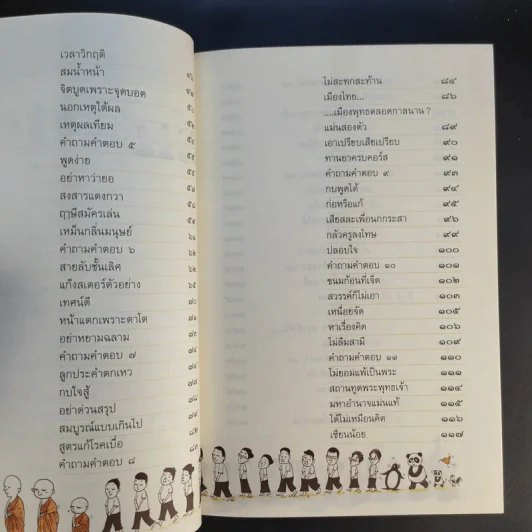 เวลาวิกฤติ
สมน้ำหน้า
จิตบูดเพราะจุดบอด
นอกเหตุใต้ผล
เหตุผลเทียม
คำถามคำตอบ ๕
พูดง่าย
อย่าหาว่ายอ
สงสารแดงกวา
ฤๅษีสมัครเล่น
เหม็นกลิ่นมนุษย์ ๖๑
คำถามคำตอบ ๖ ๖๒
สายลับชั้นเลิศ ๖๒
แก๊งสเตอร์ตัวอย่าง ๖๕
เทศน์ดี ๗๐
หน้าแตกเพราะตาโต ๗๑
อย่าหยามฉลาม ๗๔
คำถามคำตอบ ๗ ๗๔
ลูกประคำตกเหว
กบใจสู้
อย่าด่วนสรุป
สมบูรณ์แบบเกินไป
สูตรแก้โรคเบื่อ
คำถามคำตอบ ๘
ไม่สะทกสะท้าน ๘๔
เมืองไทย... ๘๖
....เมืองพุทธตลอดกาลนาน ?
แม่นสองตัว ๘๙
เอาเปรียบเสียเปรียบ ๙๐
ทานยาครบคอร์ส ๙๑
คำถามคำตอบ ๙ ๙๓
กบพูดได้ ๙๔
ก่อหรือแก้ ๙๕
เสียสละเพื่อนกกระสา ๙๖
กลัวครูลงโทษ ๙๙
ปลอบใจ ๑๐๐
คำถามคำตอบ ๑๐ ๑๐๑
ขนมก้อนที่เจ็ด ๑๐๒
สวรรค์ก็ไม่เอา ๑๐๓
เหนื่อยจัด ๑๐๕
หาเรื่องคิด ๑๐๖
ไม่ลืมสามี ๑๐๙
คำถามคำตอบ ๑๑ ๑๑๐
ไม่ยอมแพ้เป็นพระ ๑๑๑
สถานทูตพระพุทธเจ้า ๑๑๔
มหาอำนาจแม่นแท้ ๑๑๕
โต้ไม่เหมือนคิด ๑๑๖
เซียนน้อย ๑๑๗